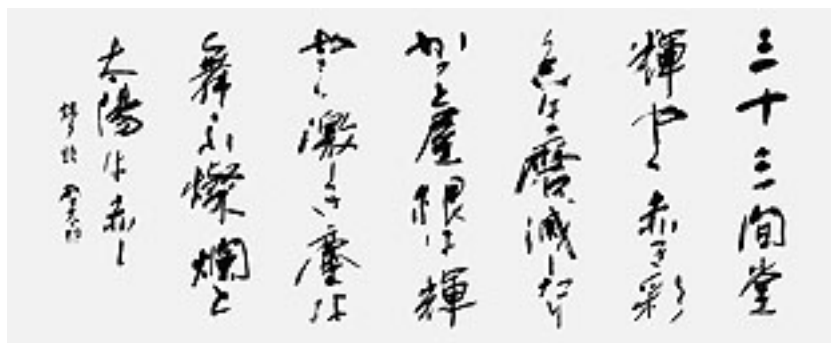 三十三間堂
輝やく赤き彩
色は磨滅したり
かつと屋根は輝
やく激しき塵は
く舞ふ燦爛と
太陽は赤し